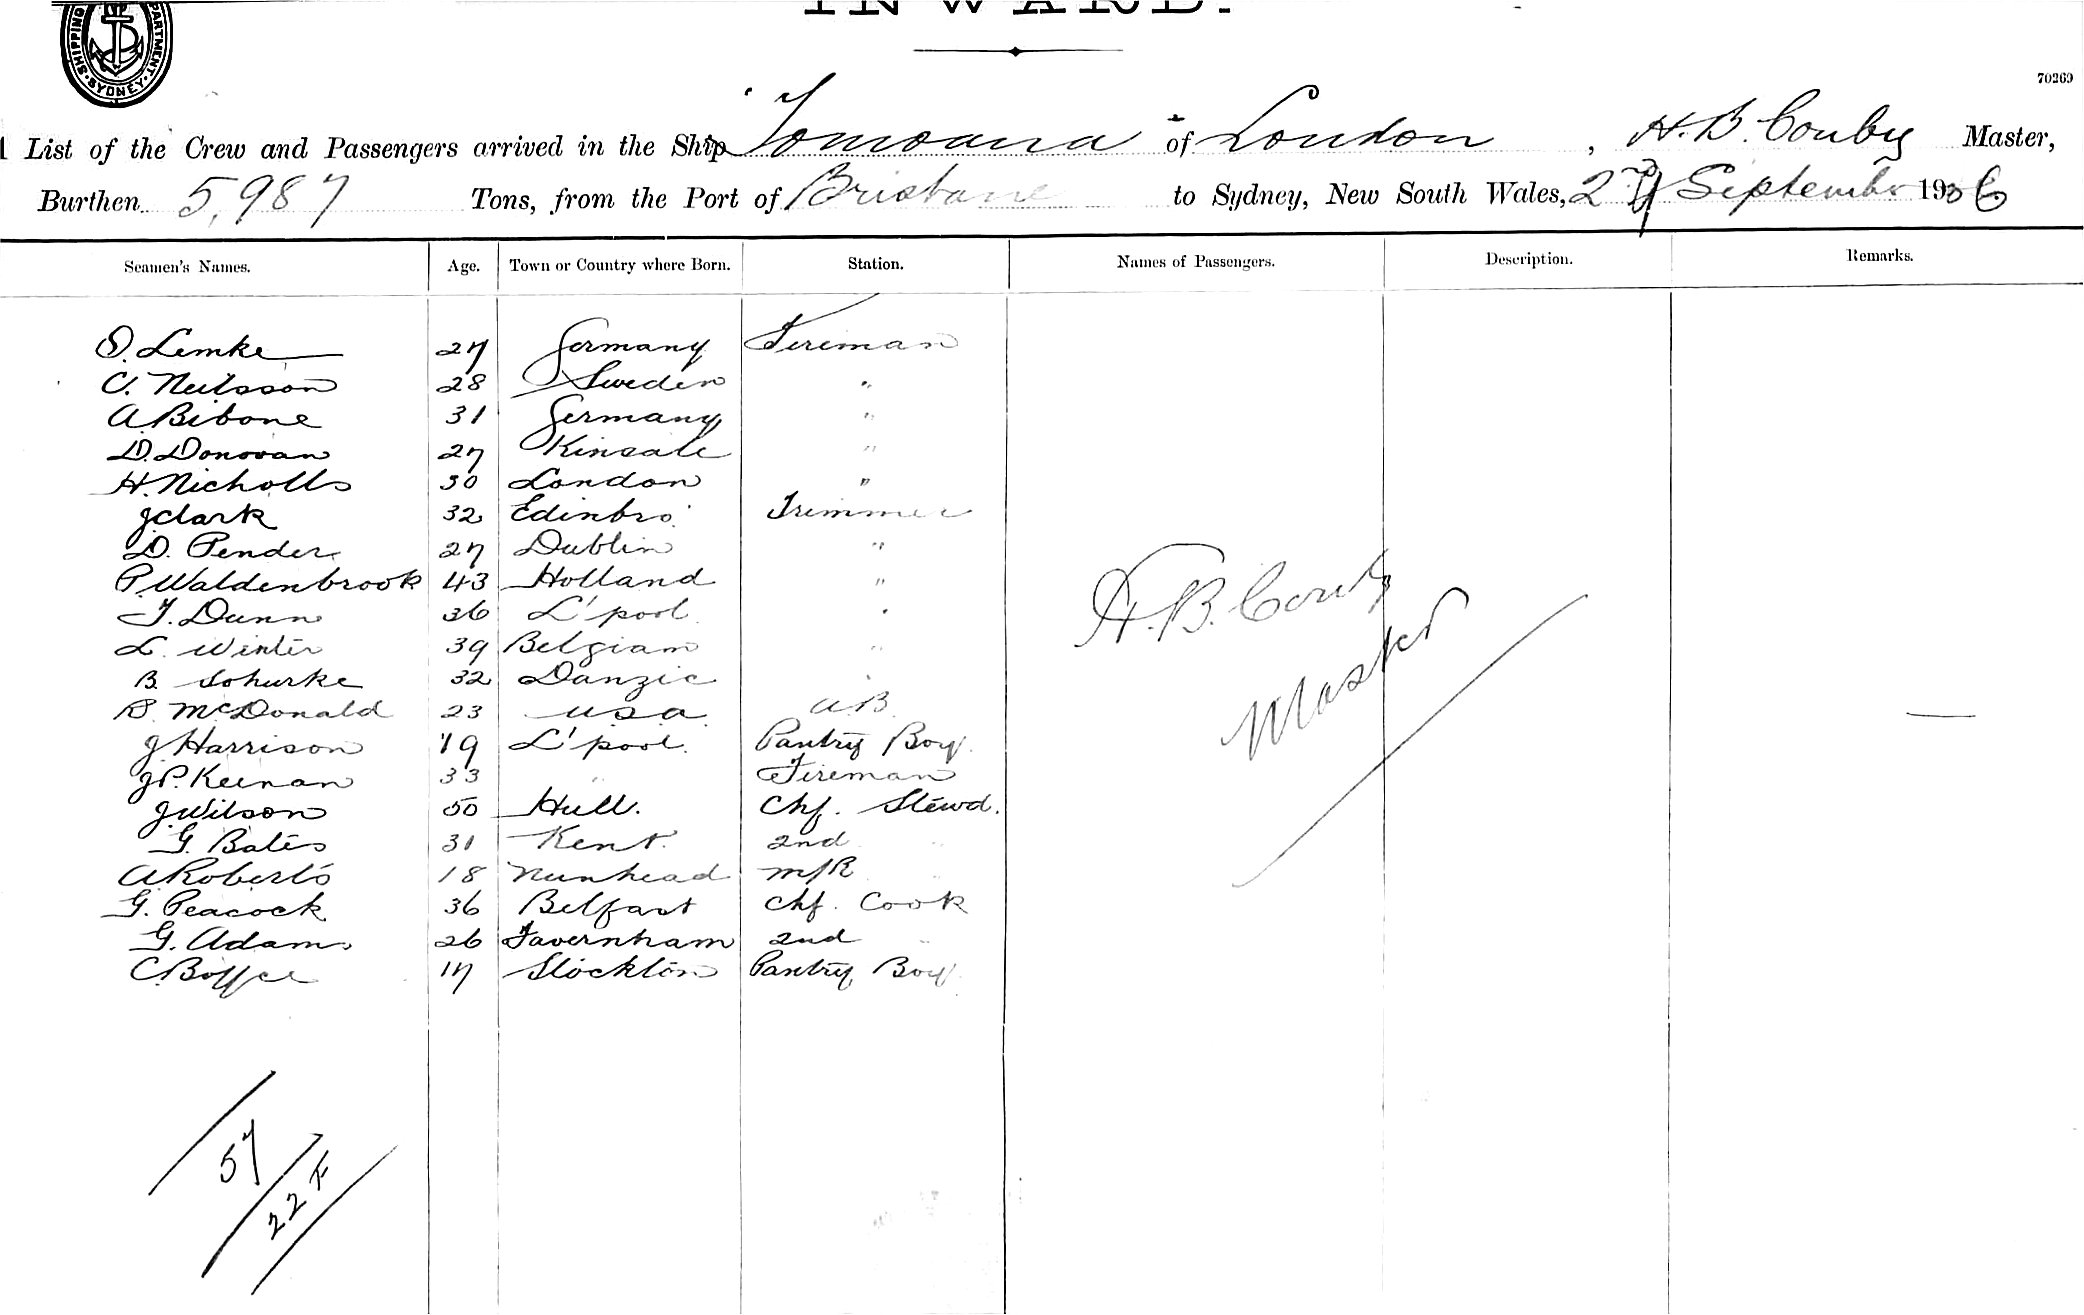 INWARD.
SHIPPING DEPARTMENT. SYDNEY.
70269
List of the Crew and Passengers arrived in the Ship Tomoana of London, H. B. Conby Master,
Burthen 5,987 Tons, from the Port of Brisbane to Sydney, New South Wales, 27 September 1906
Seamen's Names. Age. Town or Country where Born. Station. Names of Passengers. Description. Remarks.
O. Lemke 27 Germany Fireman
C. Neilsson 28 Sweden "
A. Bibone 31 Germany "
D. Donovan 27 Kinsale "
H. Nicholls 30 London "
J Clark 32 Edinbro' Trimmer
D. Pender 27 Dublin "
P. Waldenbrook 43 Holland "
T. Dunn 36 L'pool "
L. Winter 39 Belgiam "
B. Schurke 32 Danzic "
McDonald 23 U.S.A. A.B.
J Harrison 19 L'pool. Pantry Boy.
J P. Keenan 33 " Fireman
J. Wilson 50 Hull. Chf. Stewd.
G. Bates 31 Kent. 2nd "
A Roberts 18 Nunhead M/R "
G. Peacock 36 Belfast Chf. Cook
G. Adams 26 Taverham 2nd "
C. Boffee 17 Stockton Pantry Boy
H. B. Conby
Master
57
22 F